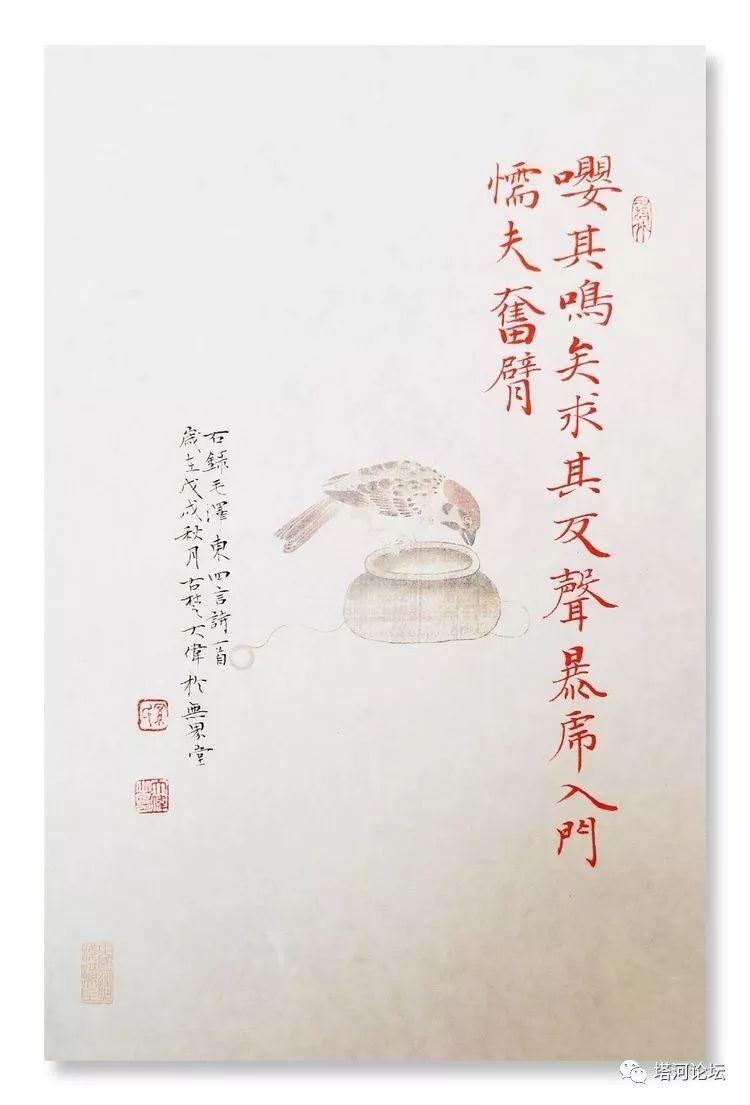 嚶其鳴矣求其友聲暴虎入門
懦夫奮臂
右錄毛澤東四言詩一首
歲在戊戌秋月古楚大偉於無界堂
塔河论坛